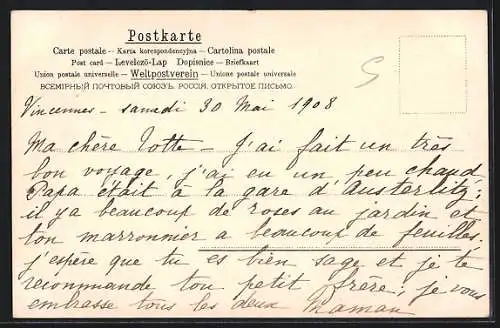 Postkarte
Carte postale – Karta korespondencyjna – Cartolina postale
Post card – Levelező-Lap Dopisnice – Briefkaart
Union postale universelle – Weltpostverein – Unione postale universale
ВСЕМІРНЫЙ ПОЧТОВЫЙ СОЮЗЪ. РОССІЯ. ОТКРЫТОЕ ПИСЬМО.
5
Vincennes – samedi 30 Mai 1908
Ma chère Totte – J'ai fait un très
bon voyage, j'ai eu un peu chaud
Papa était à la gare d'Austerlitz;
il y a beaucoup de roses au jardin et
ton marronnier a beaucoup de feuilles.
j'espère que tu es bien sage et je te
recommande ton petit frère; je vous
embrasse tous les deux Maman